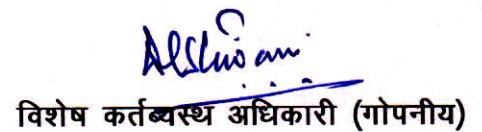 विशेष कर्तब्यस्थ अधिकारी (गोपनीय)